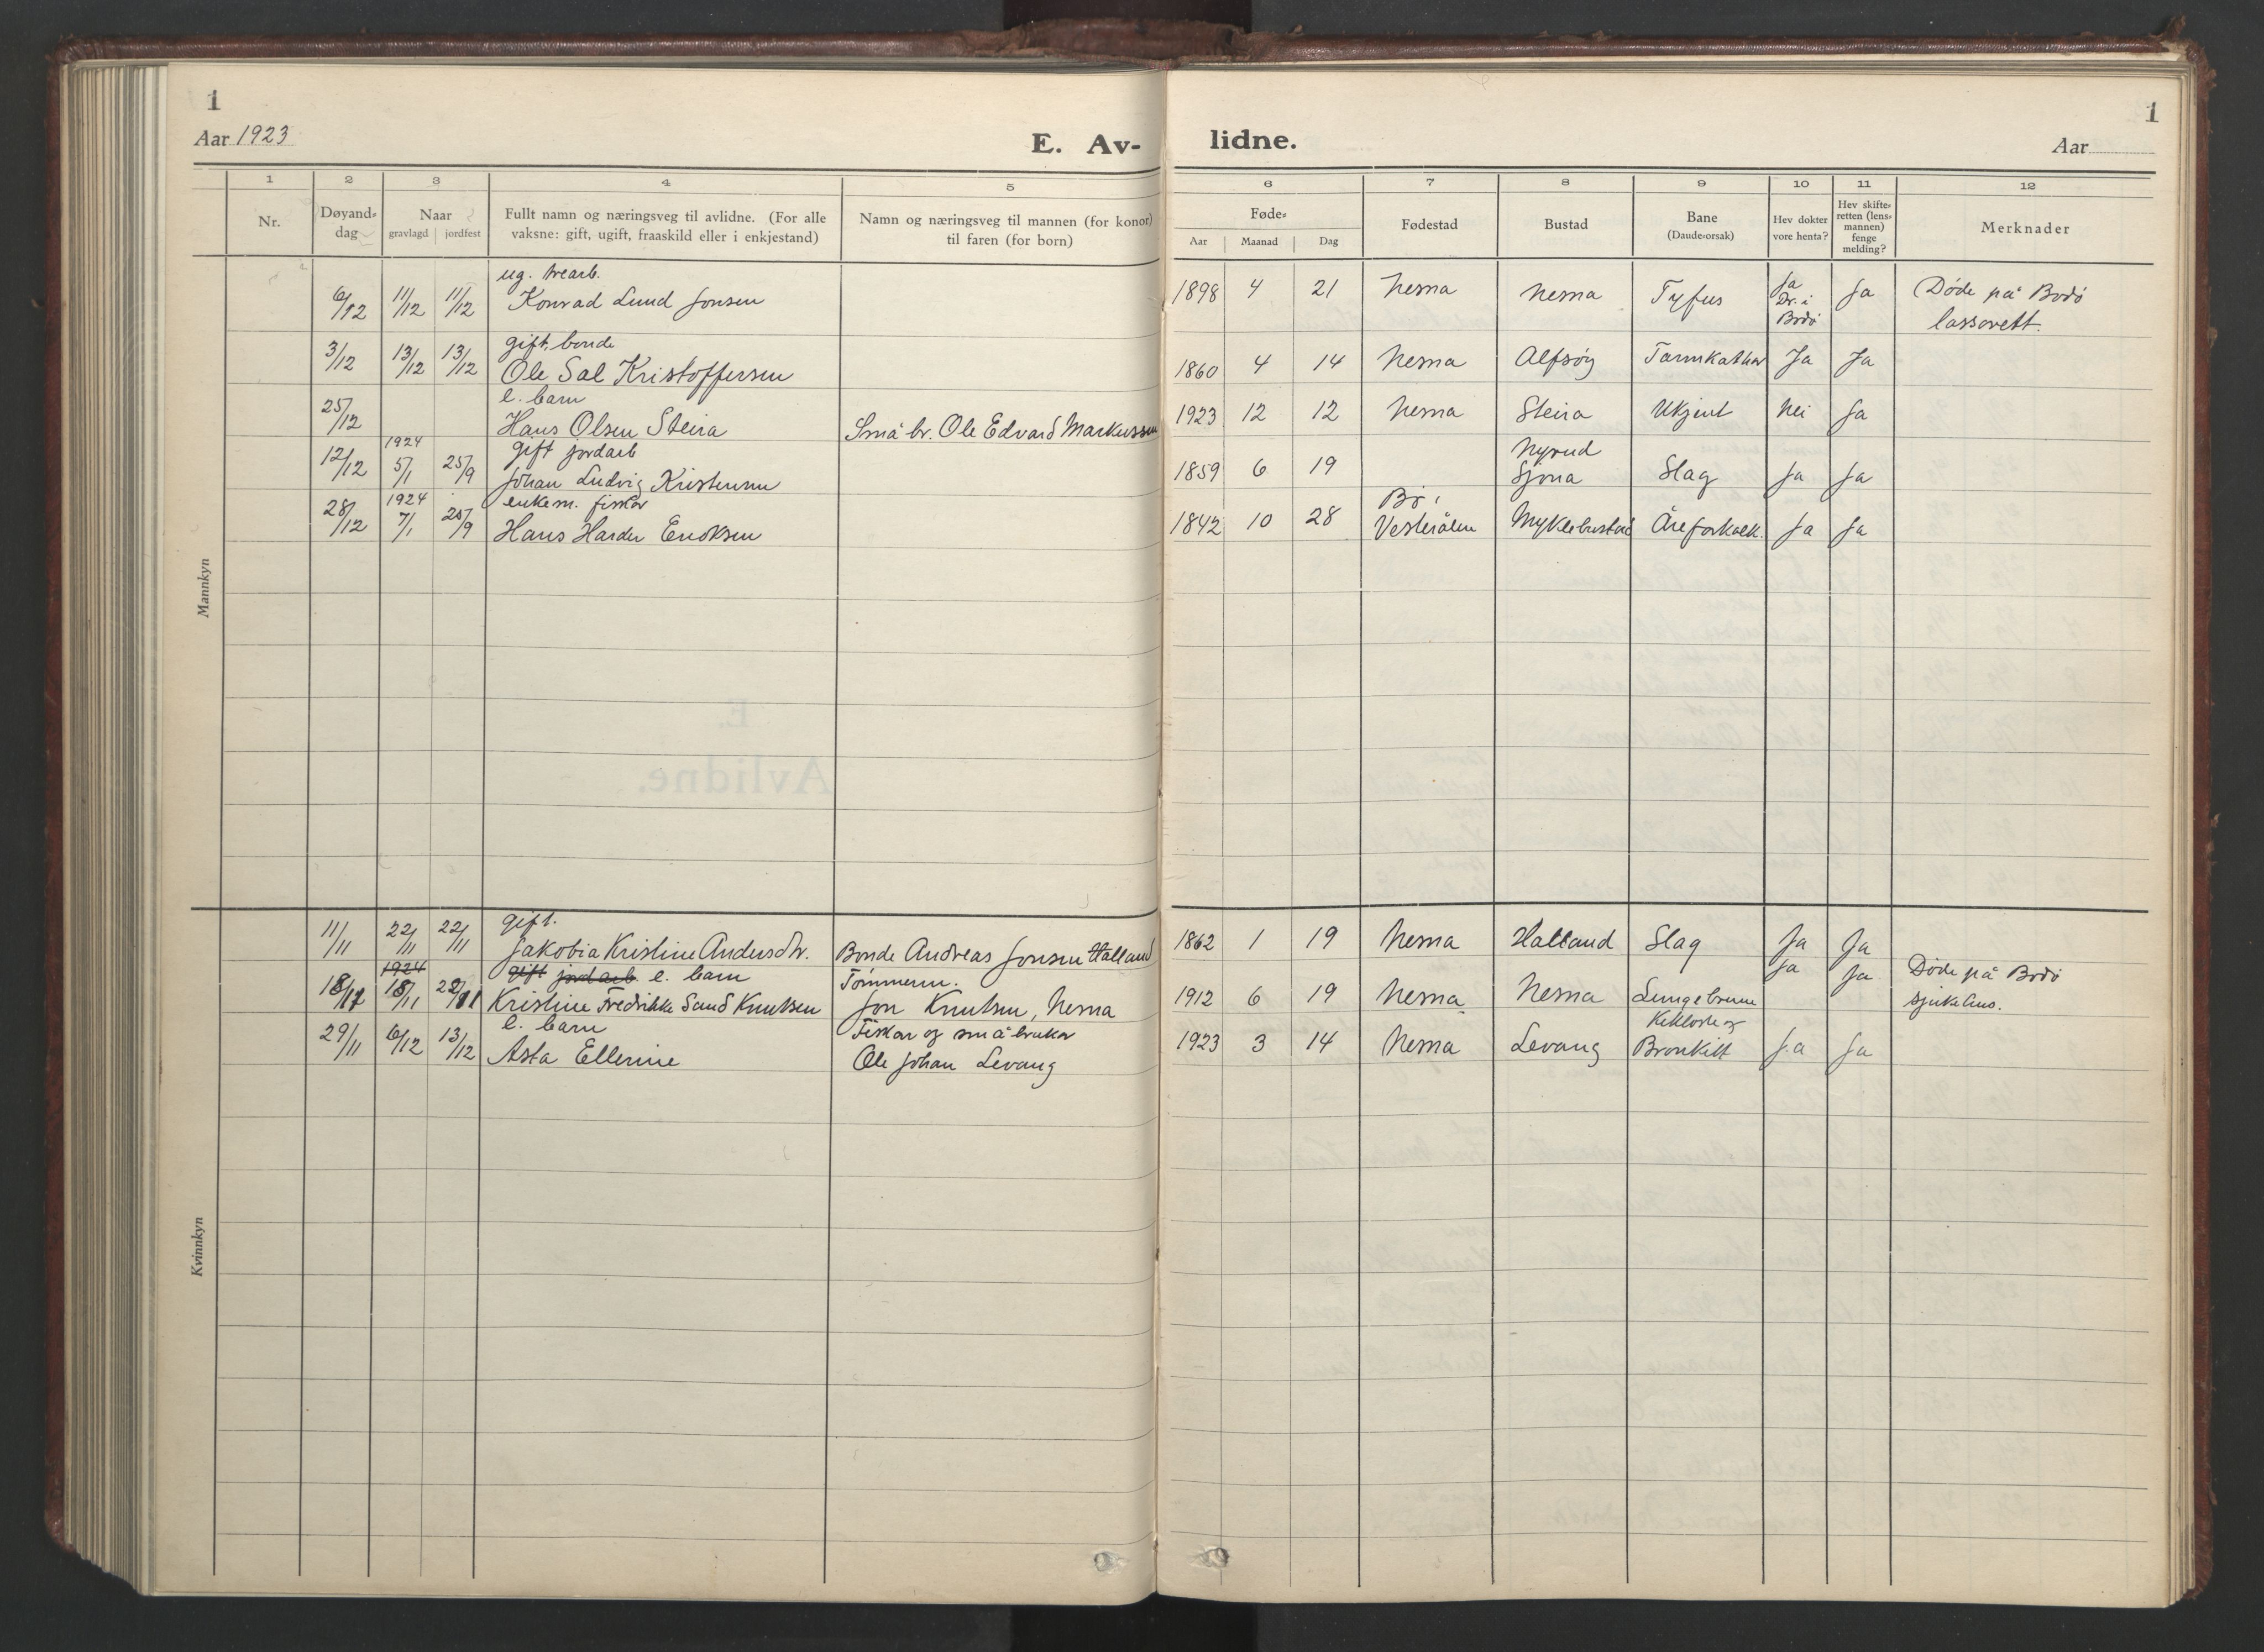 1
Aar 1923
E. Av-
lidne.
1
Aar
1 2 3 4 5 6 7 8 9 10 11 12
Nr.
Døyand-
dag
Naar
gravlagd jordfest
Fullt namn og næringsveg til avlidne. (For alle
vaksne: gift, ugift, fraaskild eller i enkjestand)
Namn og næringsveg til mannen (for konor)
til faren (for born)
Føde-
Aar Maanad Dag
Fødestad
Bustad
Bane
(Daude-orsak)
Hev dokter
vore henta?
Hev skifte-
retten (lens-
mannen)
fenge
melding?
Merknader
Mannkyn
ug. trearb.
6/12 11/12 11/12 Konrad Lund Jonsen 1898 4 21 Nesna Nesna Tyfus Ja Dr. i Bodø Ja Døde på Bodø
lassarett.
gift. bonde
3/12 13/12 13/12 Ole Sal Kristoffersen 1860 4 14 Nesna Alfsøy Tarmkathar Ja Ja
e. barn
25/12 Hans Olsen Steira Små br. Ole Edvard Markussen 1923 12 12 Nesna Steira Ukjent Nei Ja
1924 gift jordarb Nyrud
12/12 5/1 25/9 Johan Ludvig Kristensen 1859 6 19 Sjona Slag Ja Ja
1924 enkem. fiskar Bø i
28/12 7/1 25/9 Hans Harder Enoksen 1842 10 28 Vesterålen Myklebustad Åreforkalk. Ja Ja
E.
Avlidne.
Kvinnkyn
gift.
11/11 22/11 22/11 Jakobia Kristine Andersdtr. Bonde Andreas Jonsen Halland 1862 1 19 Nesna Halland Slag Ja Ja
1924 gift jordarb e. barn Tömmerm. Ja Ja Døde på Bodø
18/11 22/11 Kristine Fredrikke Sand Knutsen Jon Knutsen, Nesna 1912 6 19 Nesna Nesna Lungebrenne sjukehus.
e. barn Fiskar og småbrukar Kikhoste og
29/11 6/12 13/12 Asta Ellerine Ole Johan Levang 1923 3 14 Nesna Levang Bronkitt Ja Ja